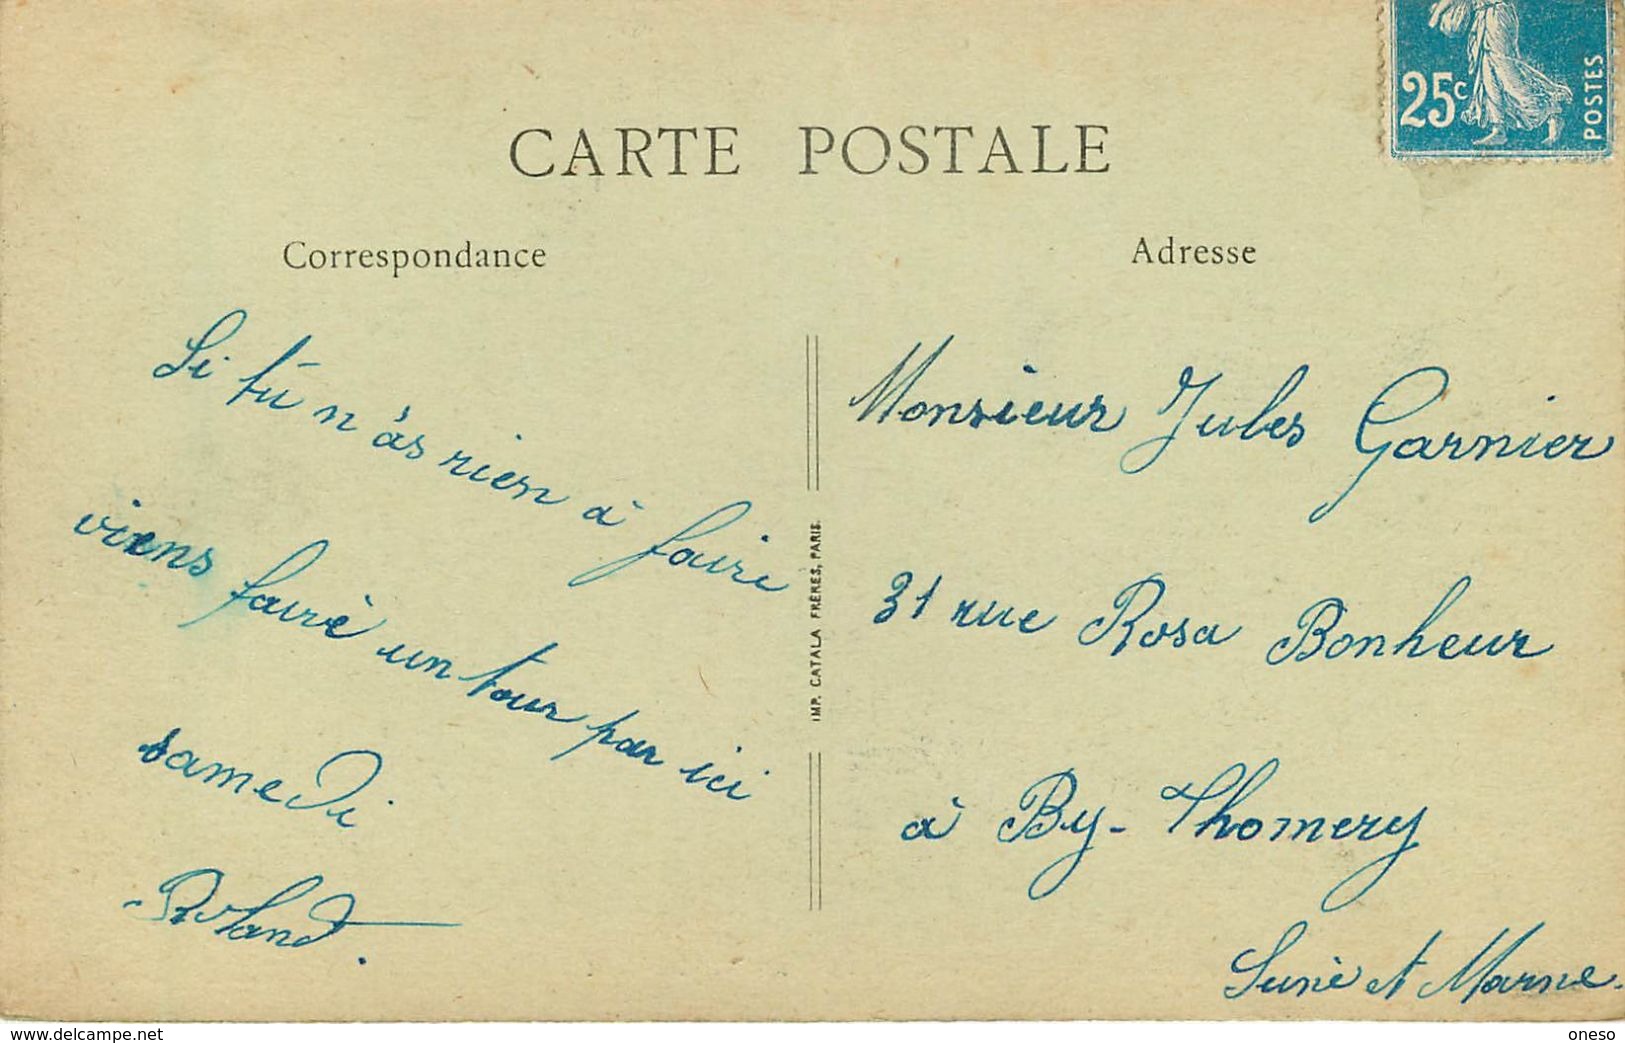 25c
POSTES
CARTE POSTALE
Correspondance
Adresse
Si tu n'as rien à faire
viens faire un tour par ici
samedi
Roland.
IMP. CATALA FRÈRES, PARIS.
Monsieur Jules Garnier
31 rue Rosa Bonheur
à By-Thomery
Seine et Marne.
www.delcampe.net
oneso